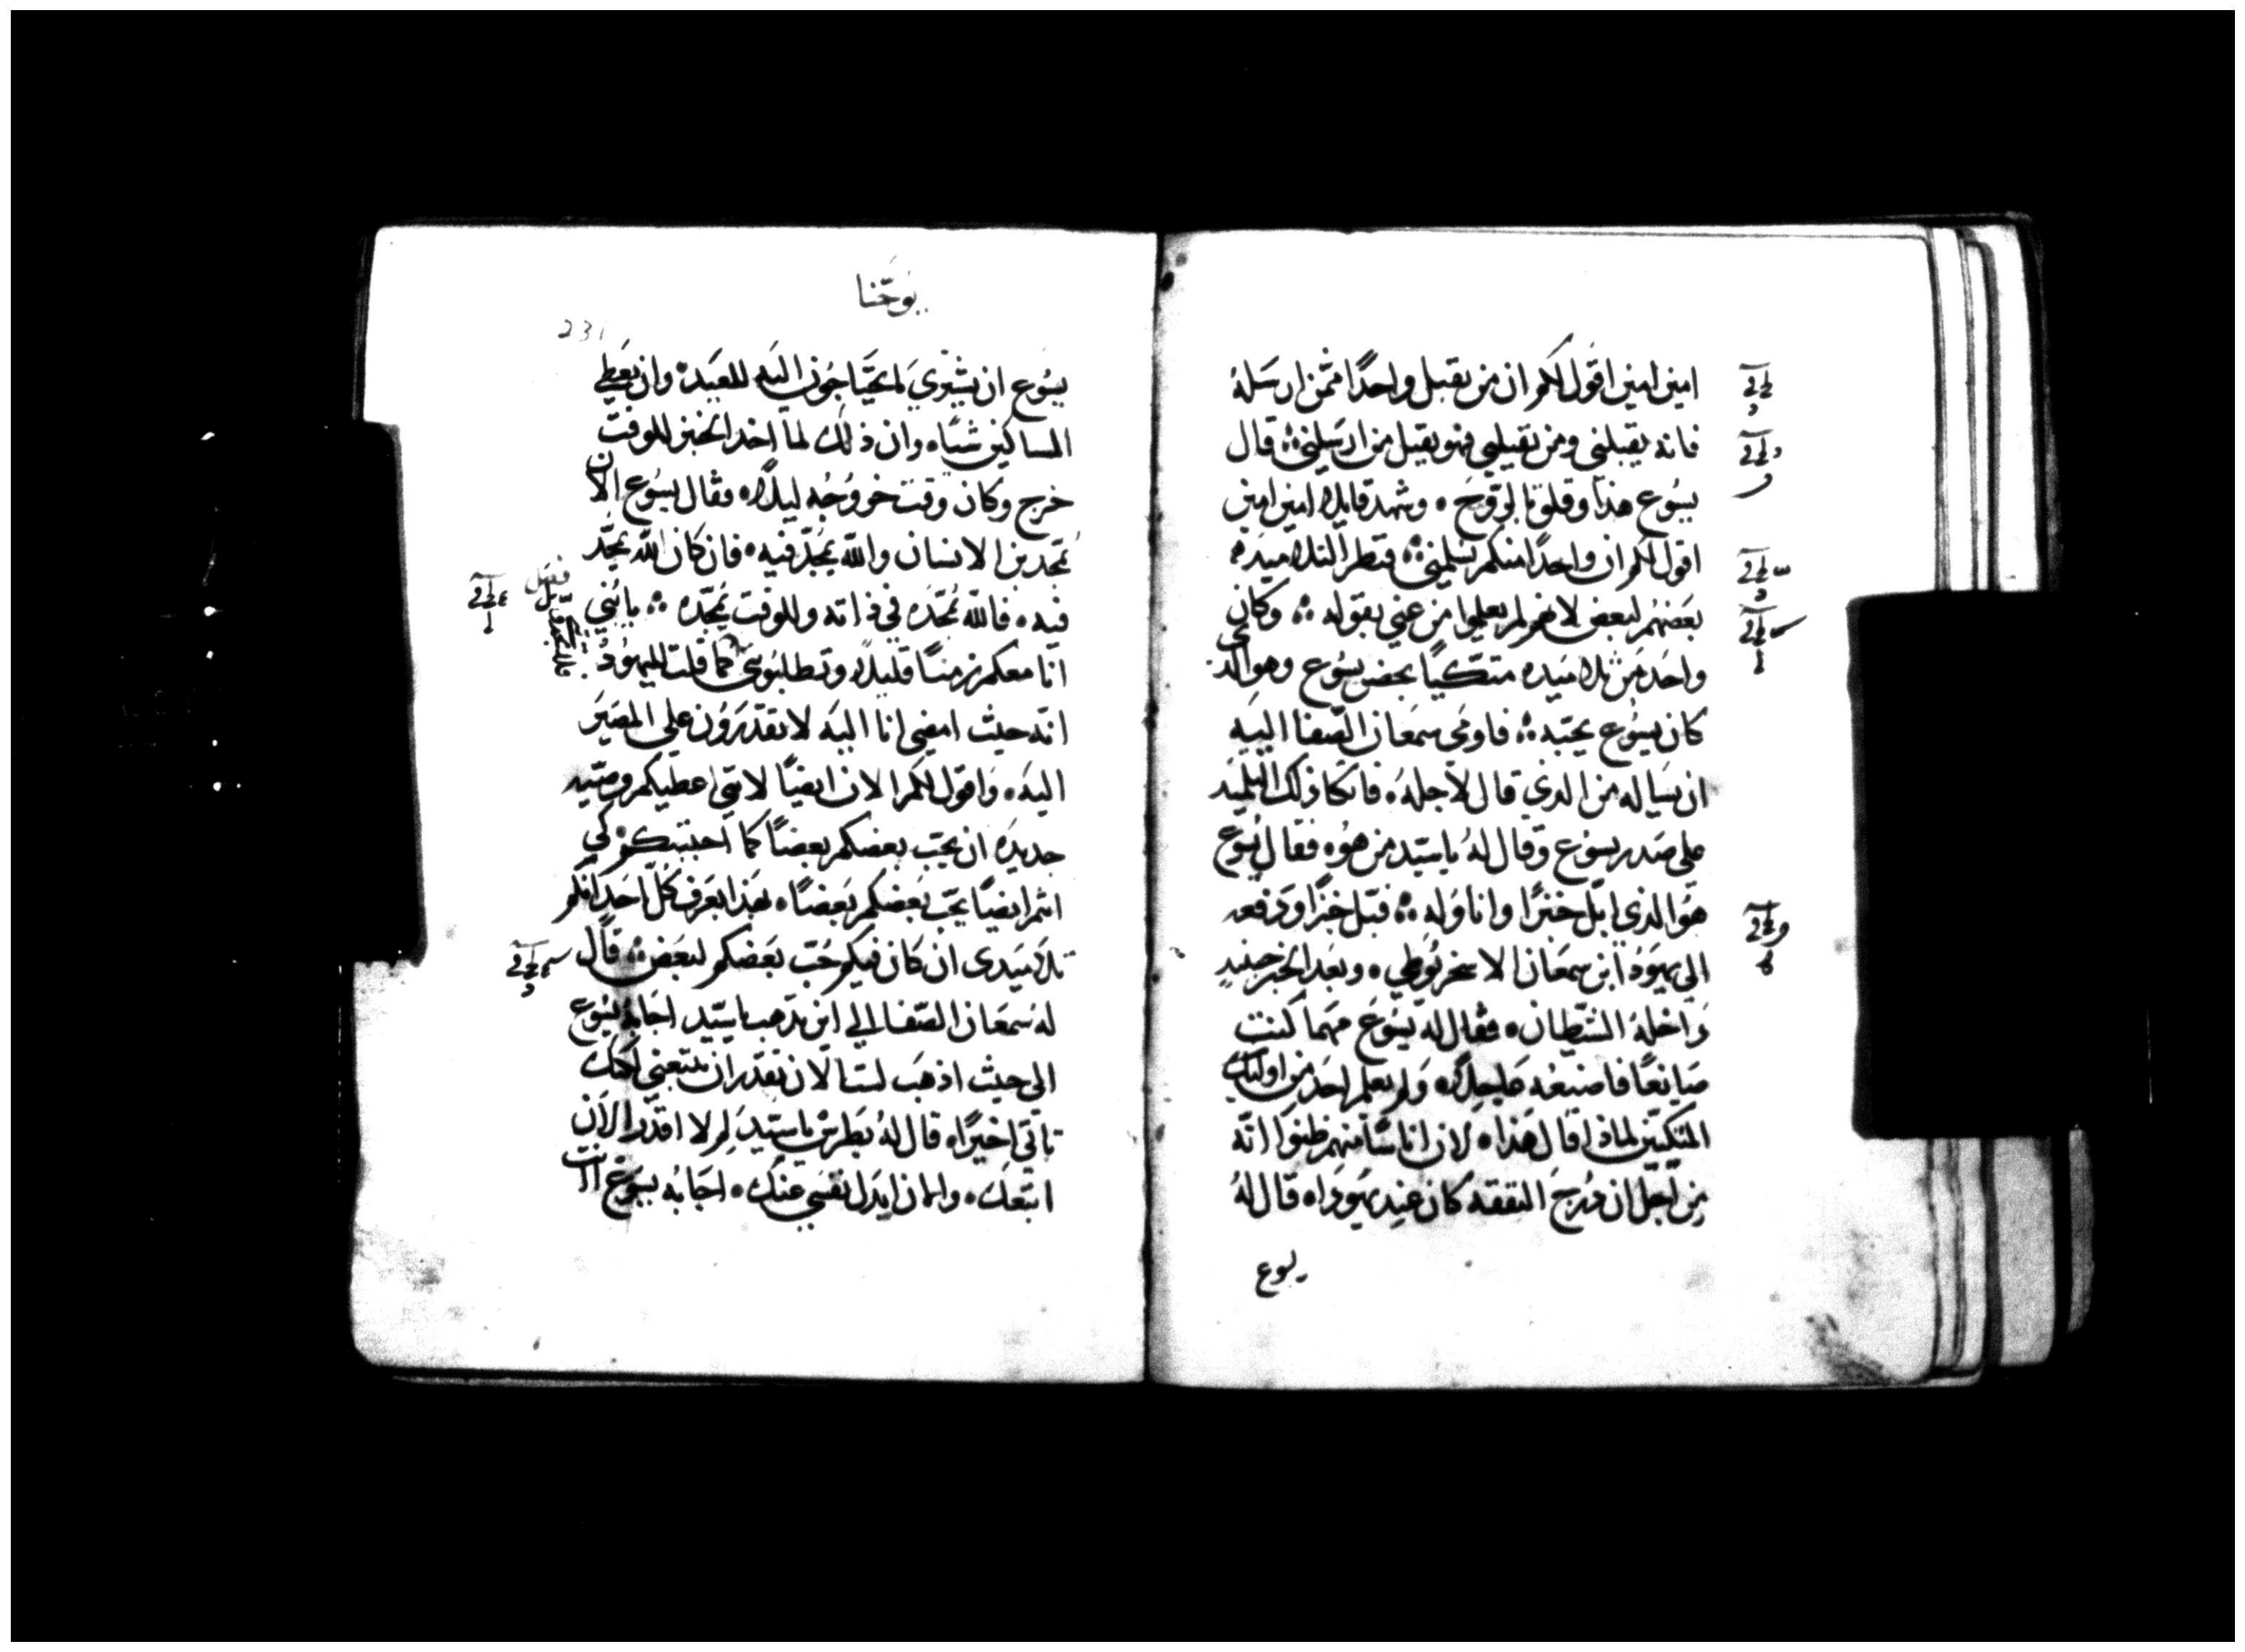 امين امين اقول لكم ان من يقبل واحدًا ممّن ارسَلهُ
فانه يقبلني ومن يقبلني فهو يقبل من ارسَلني ؞ قال
يسُوع هذا وقلق بالروح ٥ وشهد قايلا امين امين
اقول لكم ان واحدًا منكم يسَلمني ؞ فنظر التلاميده
بعَضهُم لبعض لانهم لم يعلموا من عني بقوله ؞ وكان
واحَد مَن تلاميَده متكيًا بحضن يسُوع وهو الدي
كان يسُوع يحبّه ؞ فاومي سمعَان الصّفا اليه
ان يسَاله من الدي قال لاجلهُ ٥ فاتكا ذلك التلميَد
على صَدر يسوع وقال لهُ يا سَيّد من هوُه فقال يسُوع
هوَ الدي ابَل خبزًا واناوله ؞ فبَل خبزًا ودَفعه
الى يهوَدا ابن سمعَان الاسخريُوطي ٥ وبَعد الخبز حينيدٍ
دَاخلهُ الشيَطان ٥ فقال له يسُوَع مهَما كنت
صَانعًا فاصنعُه عَاجلاً ٥ ولم يعلم احَد من اوليَك
المتكيين لماذا قال هَذا ٥ لان اناسًا منهم ظنوا انّه
من اجل ان دُرجَ النفقه كان عند يهَودَا ٥ قال لهُ
يسوع
يُوحَّنا
231
يسُوع ان يشتري مَا يحتَاجُون اليَه للعَيد ٥ وان يعَطي
المساكين شيًا ٥ وان ذلك لما اخد الخبز للوقت
خرج وكان وقت خروُجُه ليلاً ٥ فقال يسُوع الان
تمجّد بن الانسان والله يمُجّد فيه ٥ فان كان الله يمجّد
فيه ٥ فالله يُمجّدَه في ذاته وللوقت يُمجّده ؞ يا بُني
انا معكم زمنًا قليلاً وتطلبوُنني كما قلت لليهُود
انّه حيث امضي انا اليَه لا تقدَرَوُن علي المصَير
اليَه ٥ وَاقول لكم الان ايضًا لانّي اعطيكم وصَيّه
جديدَه ان يحبّ بعضكم بعضًا كما احببتكم كي
انتم ايضًا يحَبّ بَعضكم بَعضًا ٥ بهَذا يعَرف كُلّ احَد انكم
تلاميَدى ان كان فيكم حُبّ بَعضكم لبعَض ؞ قال
لهُ سمعَان الصّفا الى اين تدَهب يا سَيّد اجَابهُ يسُوع
الى حيث اذهَب لستَ الان تقدر ان تتبَعني لكنك
تاتي اخيرًا ٥ قال لهُ بطَرسَ يا سَيّد لِم لا اقدَر الان
اتبَعك ٥ والان ابدَل نفسَي عنكَ ٥ اجَابُه يسُوع اانت